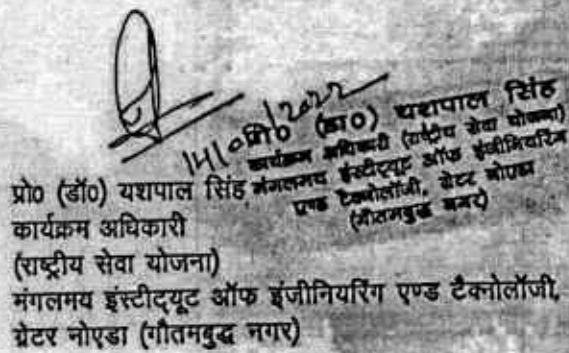 प्रो० (डा०) यशपाल सिंह
कार्यक्रम अधिकारी (राष्ट्रीय सेवा योजना)
मंगलमय इंस्टीट्यूट ऑफ इंजीनियरिंग
एण्ड टेक्नोलॉजी, ग्रेटर नोएडा
(गौतमबुद्ध नगर)
प्रो० (डॉ०) यशपाल सिंह,
कार्यक्रम अधिकारी
(राष्ट्रीय सेवा योजना)
मंगलमय इंस्टीट्यूट ऑफ इंजीनियरिंग एण्ड टैक्नोलॉजी,
ग्रेटर नोएडा (गौतमबुद्ध नगर)